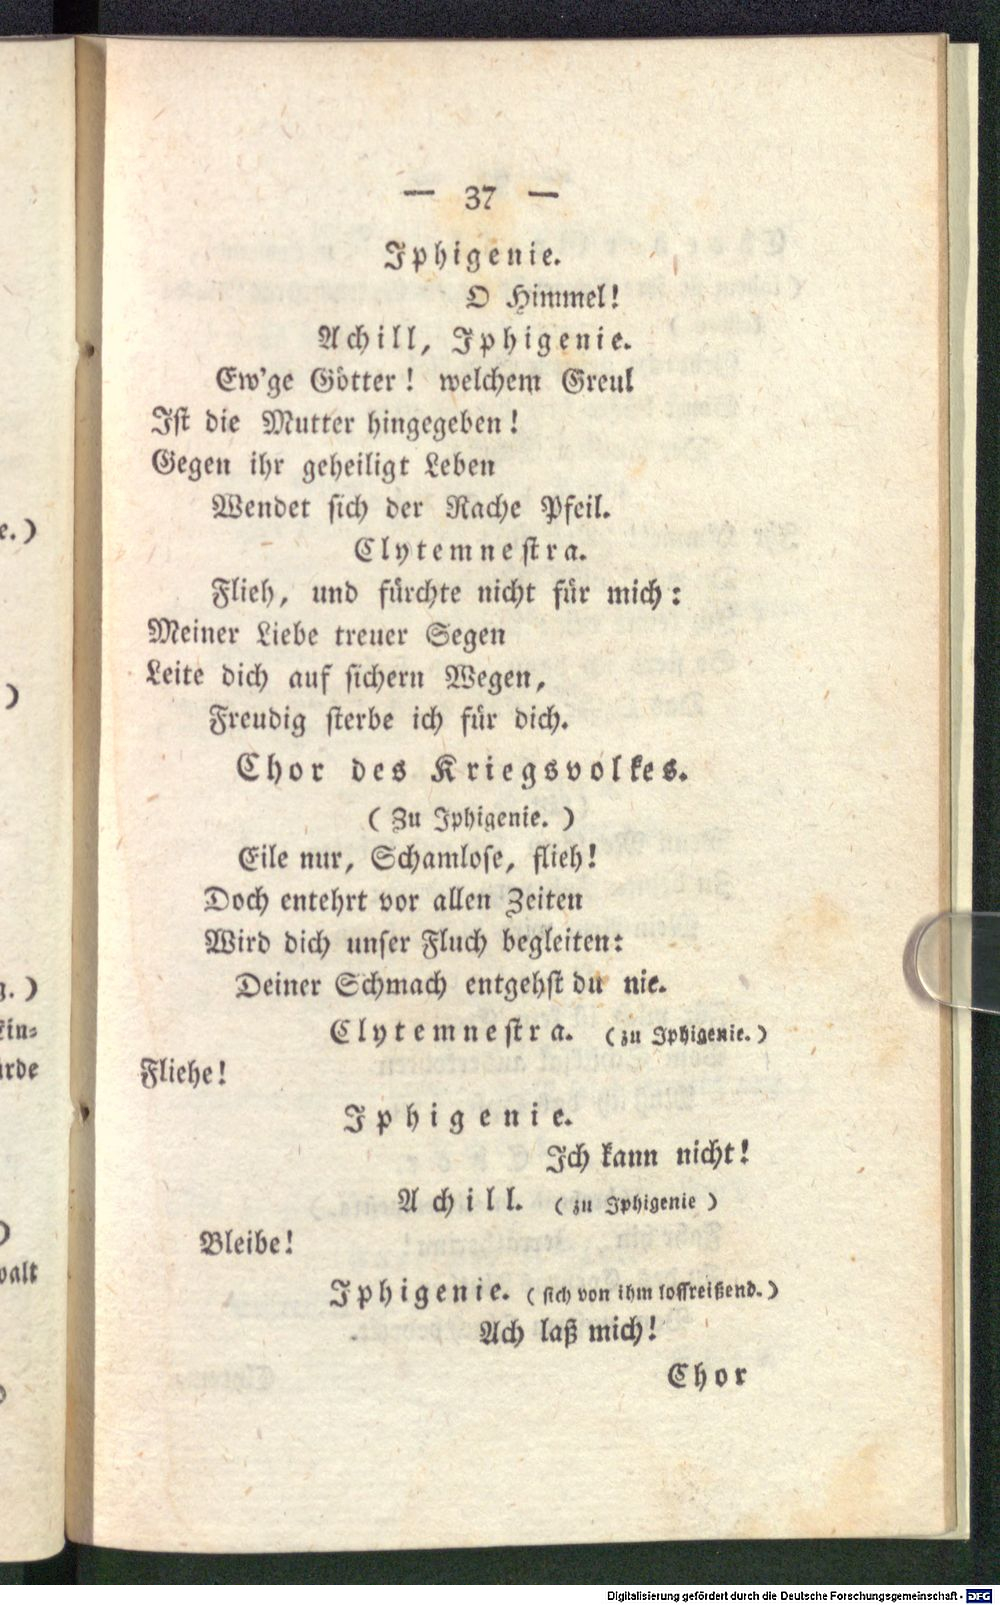 — 37 —
Iphigenie.
O Himmel!
Achill, Iphigenie.
Ew'ge Götter! welchem Greul
Ist die Mutter hingegeben!
Gegen ihr geheiligt Leben
Wendet sich der Rache Pfeil.
Clytemnestra.
Flieh, und fürchte nicht für mich:
Meiner Liebe treuer Segen
Leite dich auf sichern Wegen,
Freudig sterbe ich für dich.
Chor des Kriegsvolkes.
(Zu Iphigenie.)
Eile nur, Schamlose, flieh!
Doch entehrt vor allen Zeiten
Wird dich unser Fluch begleiten:
Deiner Schmach entgehst du nie.
Clytemnestra. (zu Iphigenie.)
Fliehe!
Iphigenie.
Ich kann nicht!
Achill. (zu Iphigenie)
Bleibe!
Iphigenie. (sich von ihm losreißend.)
Ach laß mich!
Chor
Digitalisierung gefördert durch die Deutsche Forschungsgemeinschaft - DFG